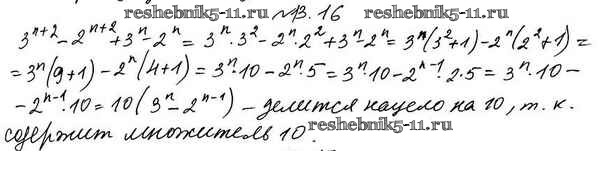 reshebnik5-11.ru №13.16 reshebnik5-11.ru
3ⁿ⁺² - 2ⁿ⁺² + 3ⁿ - 2ⁿ = 3ⁿ·3² - 2ⁿ·2² + 3ⁿ - 2ⁿ = 3ⁿ(3²+1) - 2ⁿ(2²+1) =
= 3ⁿ(9+1) - 2ⁿ(4+1) = 3ⁿ·10 - 2ⁿ·5 = 3ⁿ·10 - 2ⁿ⁻¹·2·5 = 3ⁿ·10 -
- 2ⁿ⁻¹·10 = 10(3ⁿ - 2ⁿ⁻¹) - делится нацело на 10, т. к.
содержит множитель 10. reshebnik5-11.ru